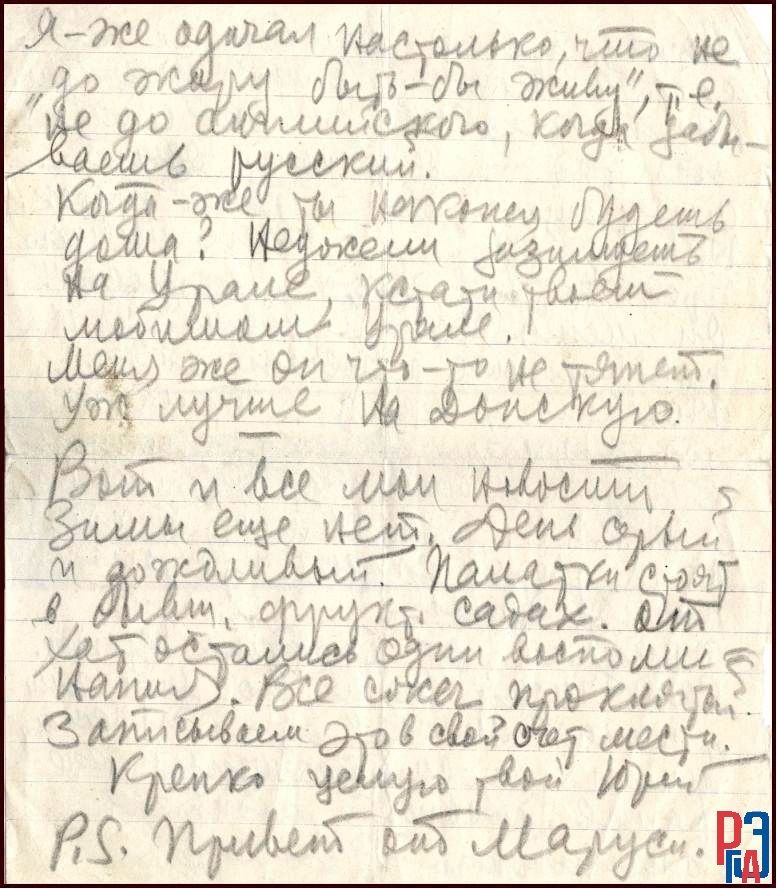 Я-же одичал настолько, что не
„до жиру быть-бы живу", т.е.
не до английского, когда забы-
ваешь русский.
Когда-же ты наконец будешь
дома? Неужели зазимуешь
на Урале, кстати твоем
любимом Урале.
Меня же он что-то не тянет.
Уж лучше на Донскую.
Вот и все мои новости
Зимы еще нет. День серый
и дождливый. Палатки стоят
в бывш. фрукт. садах. От
хат остались одни воспоми-
нания. Все сжег проклятый.
Записываем это в свой счет мести.
Крепко целую твой Юрий
P.S. Привет от Маруси.
РГАЭ